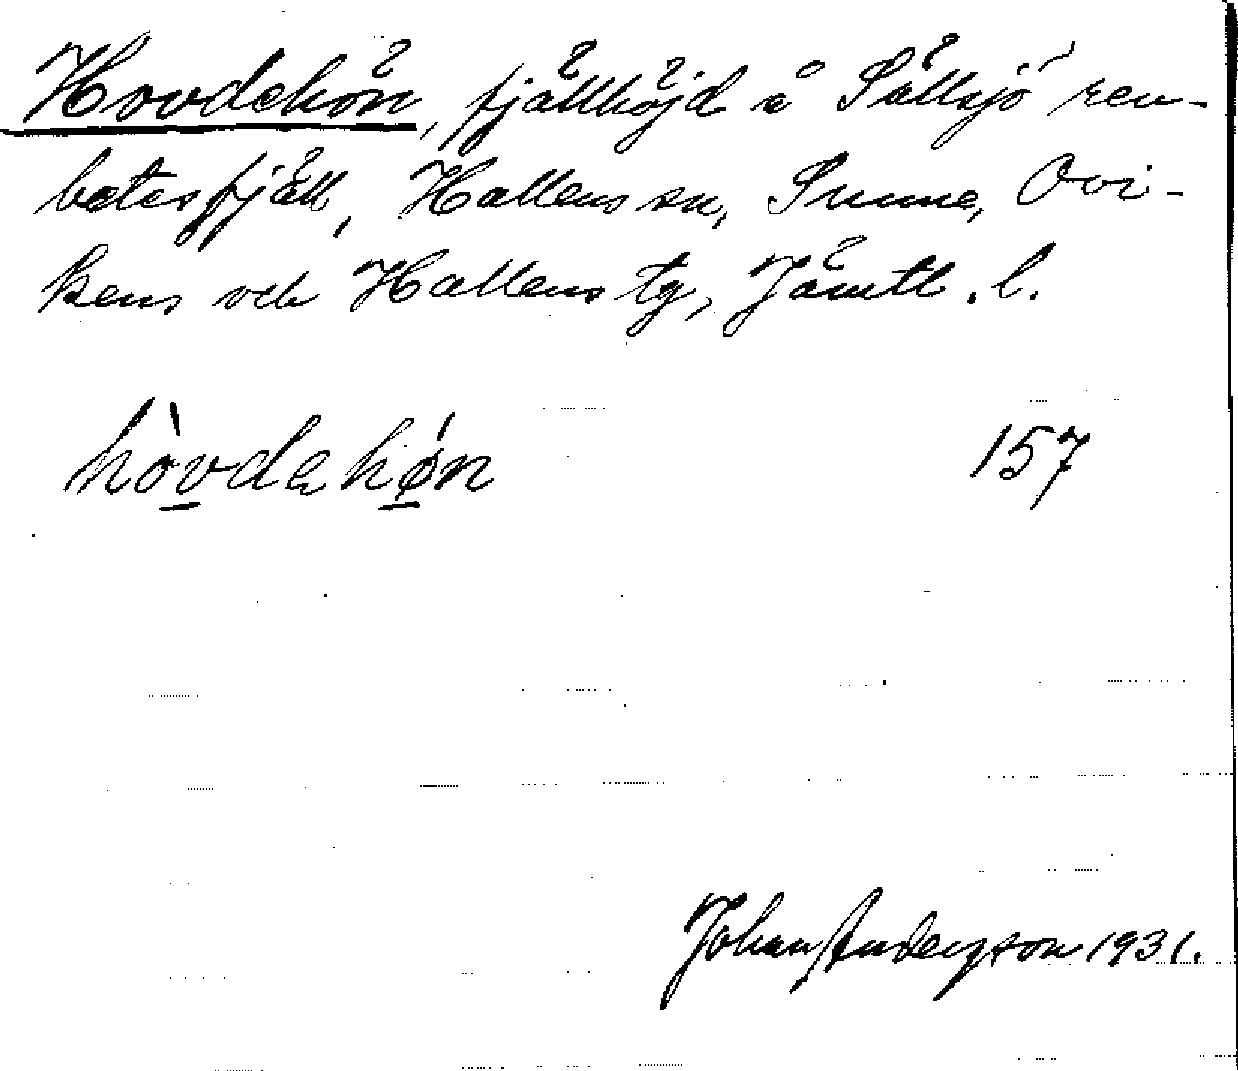 Hovdehön, fjällhöjd å Sällsjö ren-
betesfjäll, Hallens sn, Sunne, Ovi-
kens och Hallens tg, Jämtl. l.
hòvdehǿn 157
Johan Anderzson 1931.